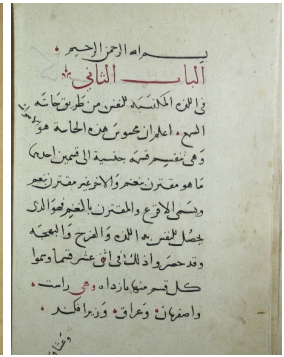 بسم الله الرحمن الرحيم
الباب الثاني
في اللذه المكتسبه للنفس من طريق حاسّة
السمع اعلم ان محسوس هذه الحاسة هو
وهي تنقسم قسمة جنسية الى قسمين احدهما
ما هو مقترن بنغم والاخر غير مقترن بنغم
ويسمى والمقترن بالنغم فهو الذي
يحصل للنفس به اللذه والفرح والبهجه
وقد حصروا ذلك في اثنى عشر قسما وسموا
كل قسم منها وهي راست
واصفهان وعراق وزيرافكند